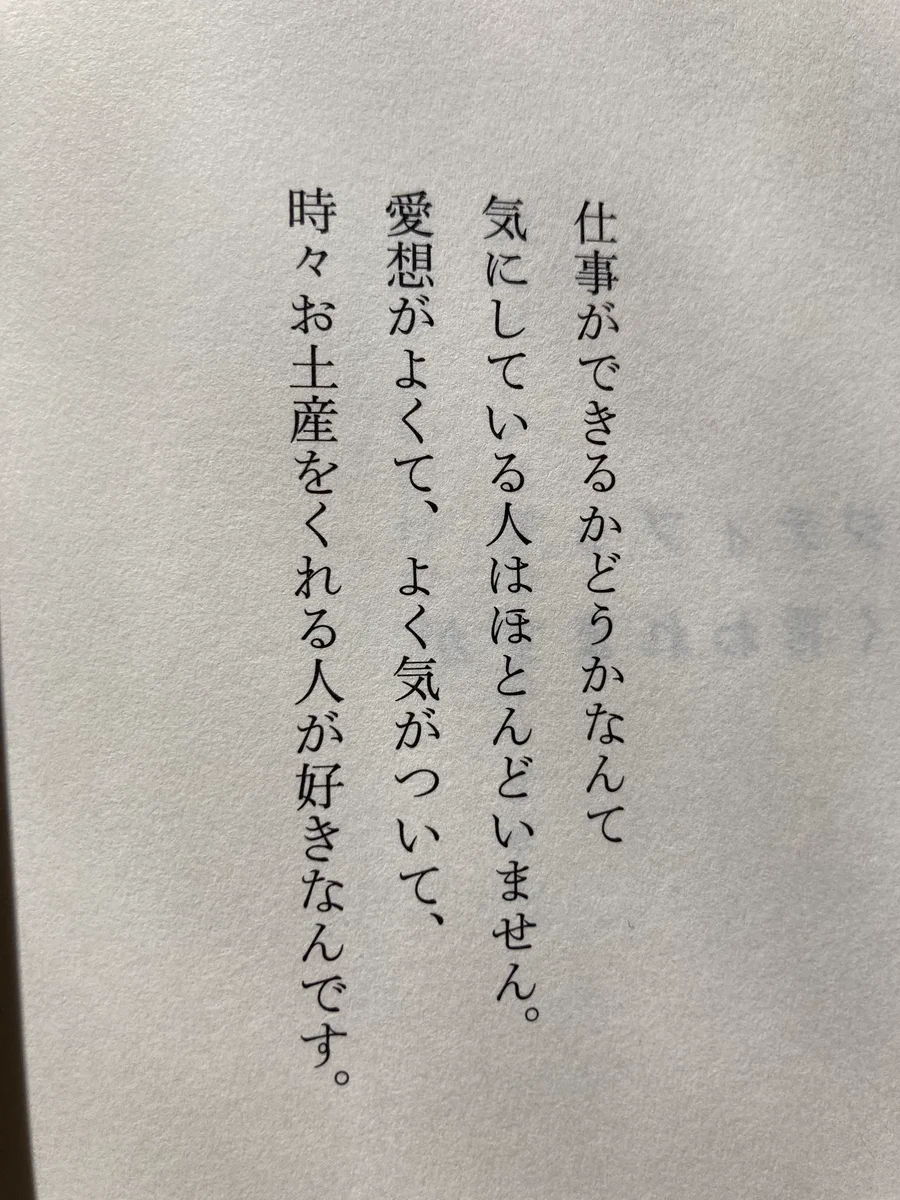 仕事ができるかどうかなんて
気にしている人はほとんどいません。
愛想がよくて、よく気がついて、
時々お土産をくれる人が好きなんです。